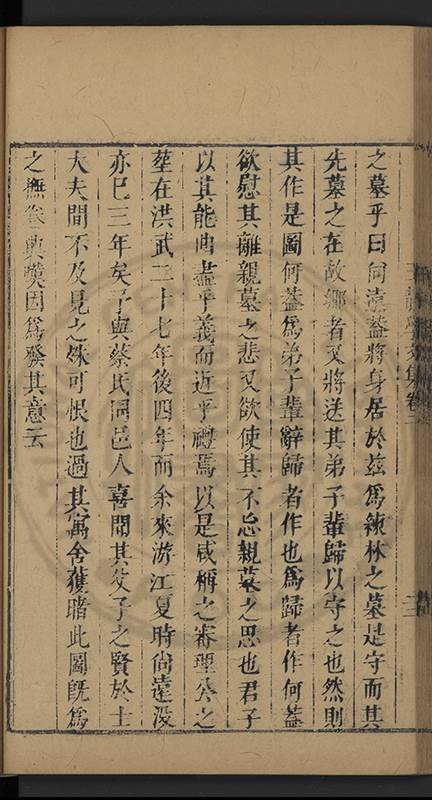 之墓乎曰何遠葢將身居於茲為練林之墓是守而其
先墓之在故鄉者又將送其弟子輩歸以守之也然則
其作是圖何葢為弟子輩辭歸者作也為歸者作何葢
欲慰其離親墓之悲又欲使其不忘親墓之思也君子
以其能曲盡乎義而近乎禮焉以是咸稱之審理公之
塟在洪武二十七年後四年而余來游江夏時尙遠没
亦已三年矣予與蔡氏同邑人喜聞其父子之賢於士
大夫間不及見之殊可恨也過其寓舍獲睹此圖旣為
之撫卷興嘆因為發其意云
文集卷二